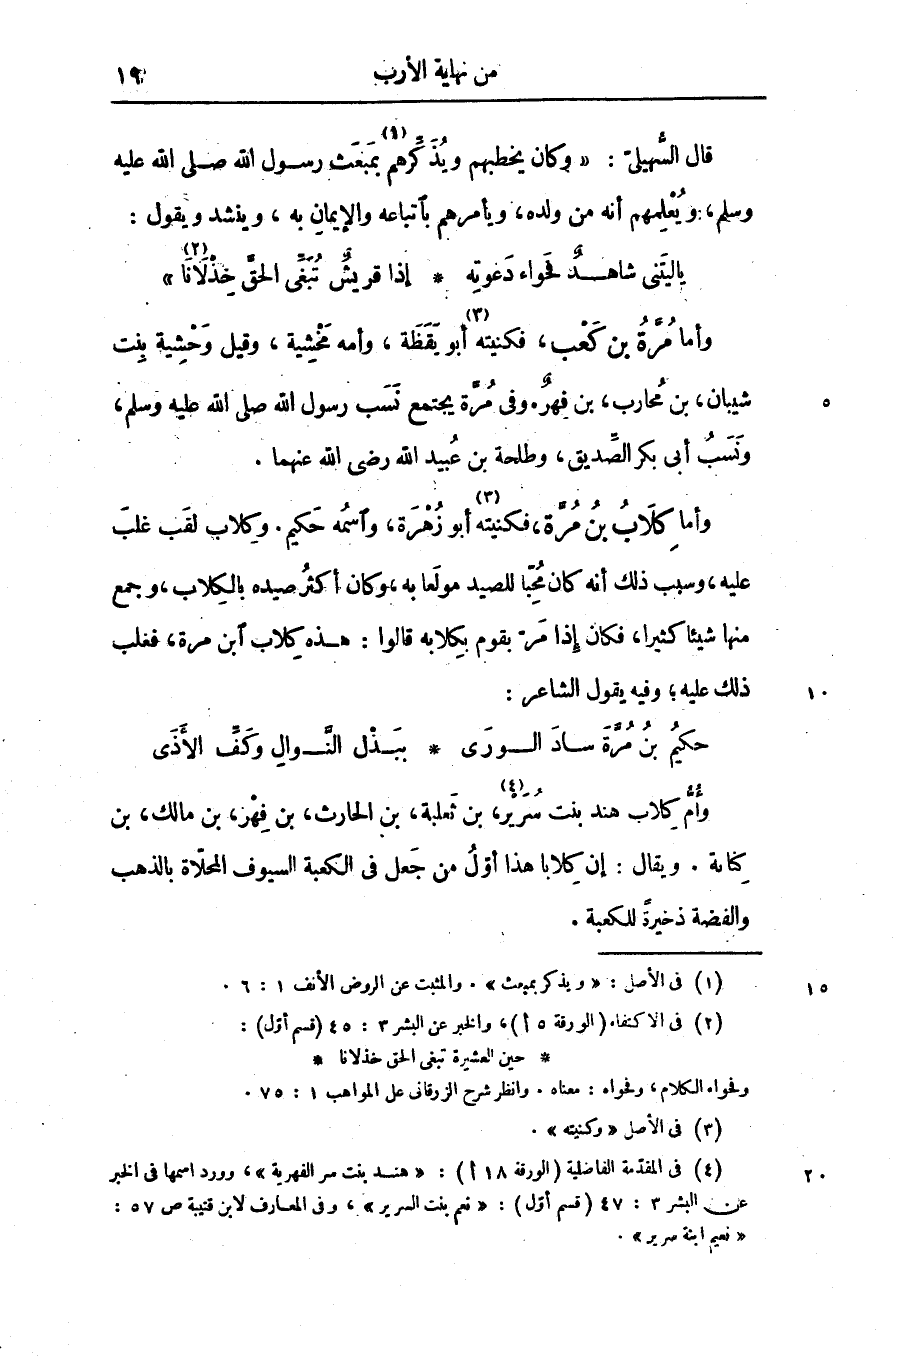 من نهاية الأرب ١٩
قال السُّهيلىّ : « وكان يخطبهم ويُذَكِّرهم بمَبْعَث (١) رسول الله صلى الله عليه
وسلم، ويُعْلِمهم أنه من ولده، ويأمرهم بٱتباعه والإيمانِ به ، وينشد ويقول :
ياليتَنى شاهدٌ فَحواء دَعوتِه * إذا قريشٌ تُبَغِّى الحقَّ خِذْلَانَا (٢) »
وأما مُرَّةُ بن كَعْب، فكنيته (٣) أبو يَقَظَة ، وأمه مَخْشِية ، وقيل وَحْشِية بِنت
شيبان، بن مُحارب، بن فِهرٌ. وفى مُرَّة يجتمع نَسَب رسول الله صلى الله عليه وسلم، ٥
ونَسَبُ أبى بكر الصِّديق، وطلحة بن عُبيد الله رضى الله عنهما .
وأما كِلَابُ بنُ مُرَّة، فكنيته (٣) أبو زُهْرَة، وٱسمُه حَكيم. وكلاب لقب غلبَ
عليه، وسبب ذلك أنه كان مُحِبًّا للصيد مولَعا به، وكان أكثرُ صيده بالكِلاب، وجمع
منها شيئا كثيرا، فكان إذا مَرّ بقوم بِكلابه قالوا : هذه كِلاب ٱبن مرة، فغلب
ذلك عليه؛ وفيه يقول الشاعر : ١٠
حكيمُ بنُ مُرَّةَ سادَ الورَى * ببَذْل النَّوالِ وكَفِّ الأَذَى
وأُمّ كِلاب هند بنت سُرَير (٤)، بن ثَعلبة، بن الحارث، بن فِهْر، بن مالك، بن
كِنانة . ويقال : إن كِلابا هذا أوّلُ من جَعل فى الكعبة السيوف المحلّاة بالذهب
والفضة ذخيرةً للكعبة .
(١) فى الأصل : « ويذكر بمبعث » . والمثبت عن الروض الأنف ١ : ٦ . ١٥
(٢) فى الاكتفاء (الورقة ٥ أ)، والخبر عن البشر ٣ : ٤٥ (قسم أوّل) :
* حين العشيرة تبغى الحق خذلانا *
وفحواء الكلام، وفحواه : معناه . وانظر شرح الزرقانى على المواهب ١ : ٧٥ .
(٣) فى الأصل « وكنيته » .
(٤) فى المقدّمة الفاضلية (الورقة ١٨ أ) : « هند بنت سر الفهرية »، وورد اسمها فى الخبر ٢٠
عن البشر ٣ : ٤٧ (قسم أوّل) : « نعم بنت السرير » ، وفى المعارف لابن قتيبة ص ٥٧ :
« نعيم ابنة سرير » .